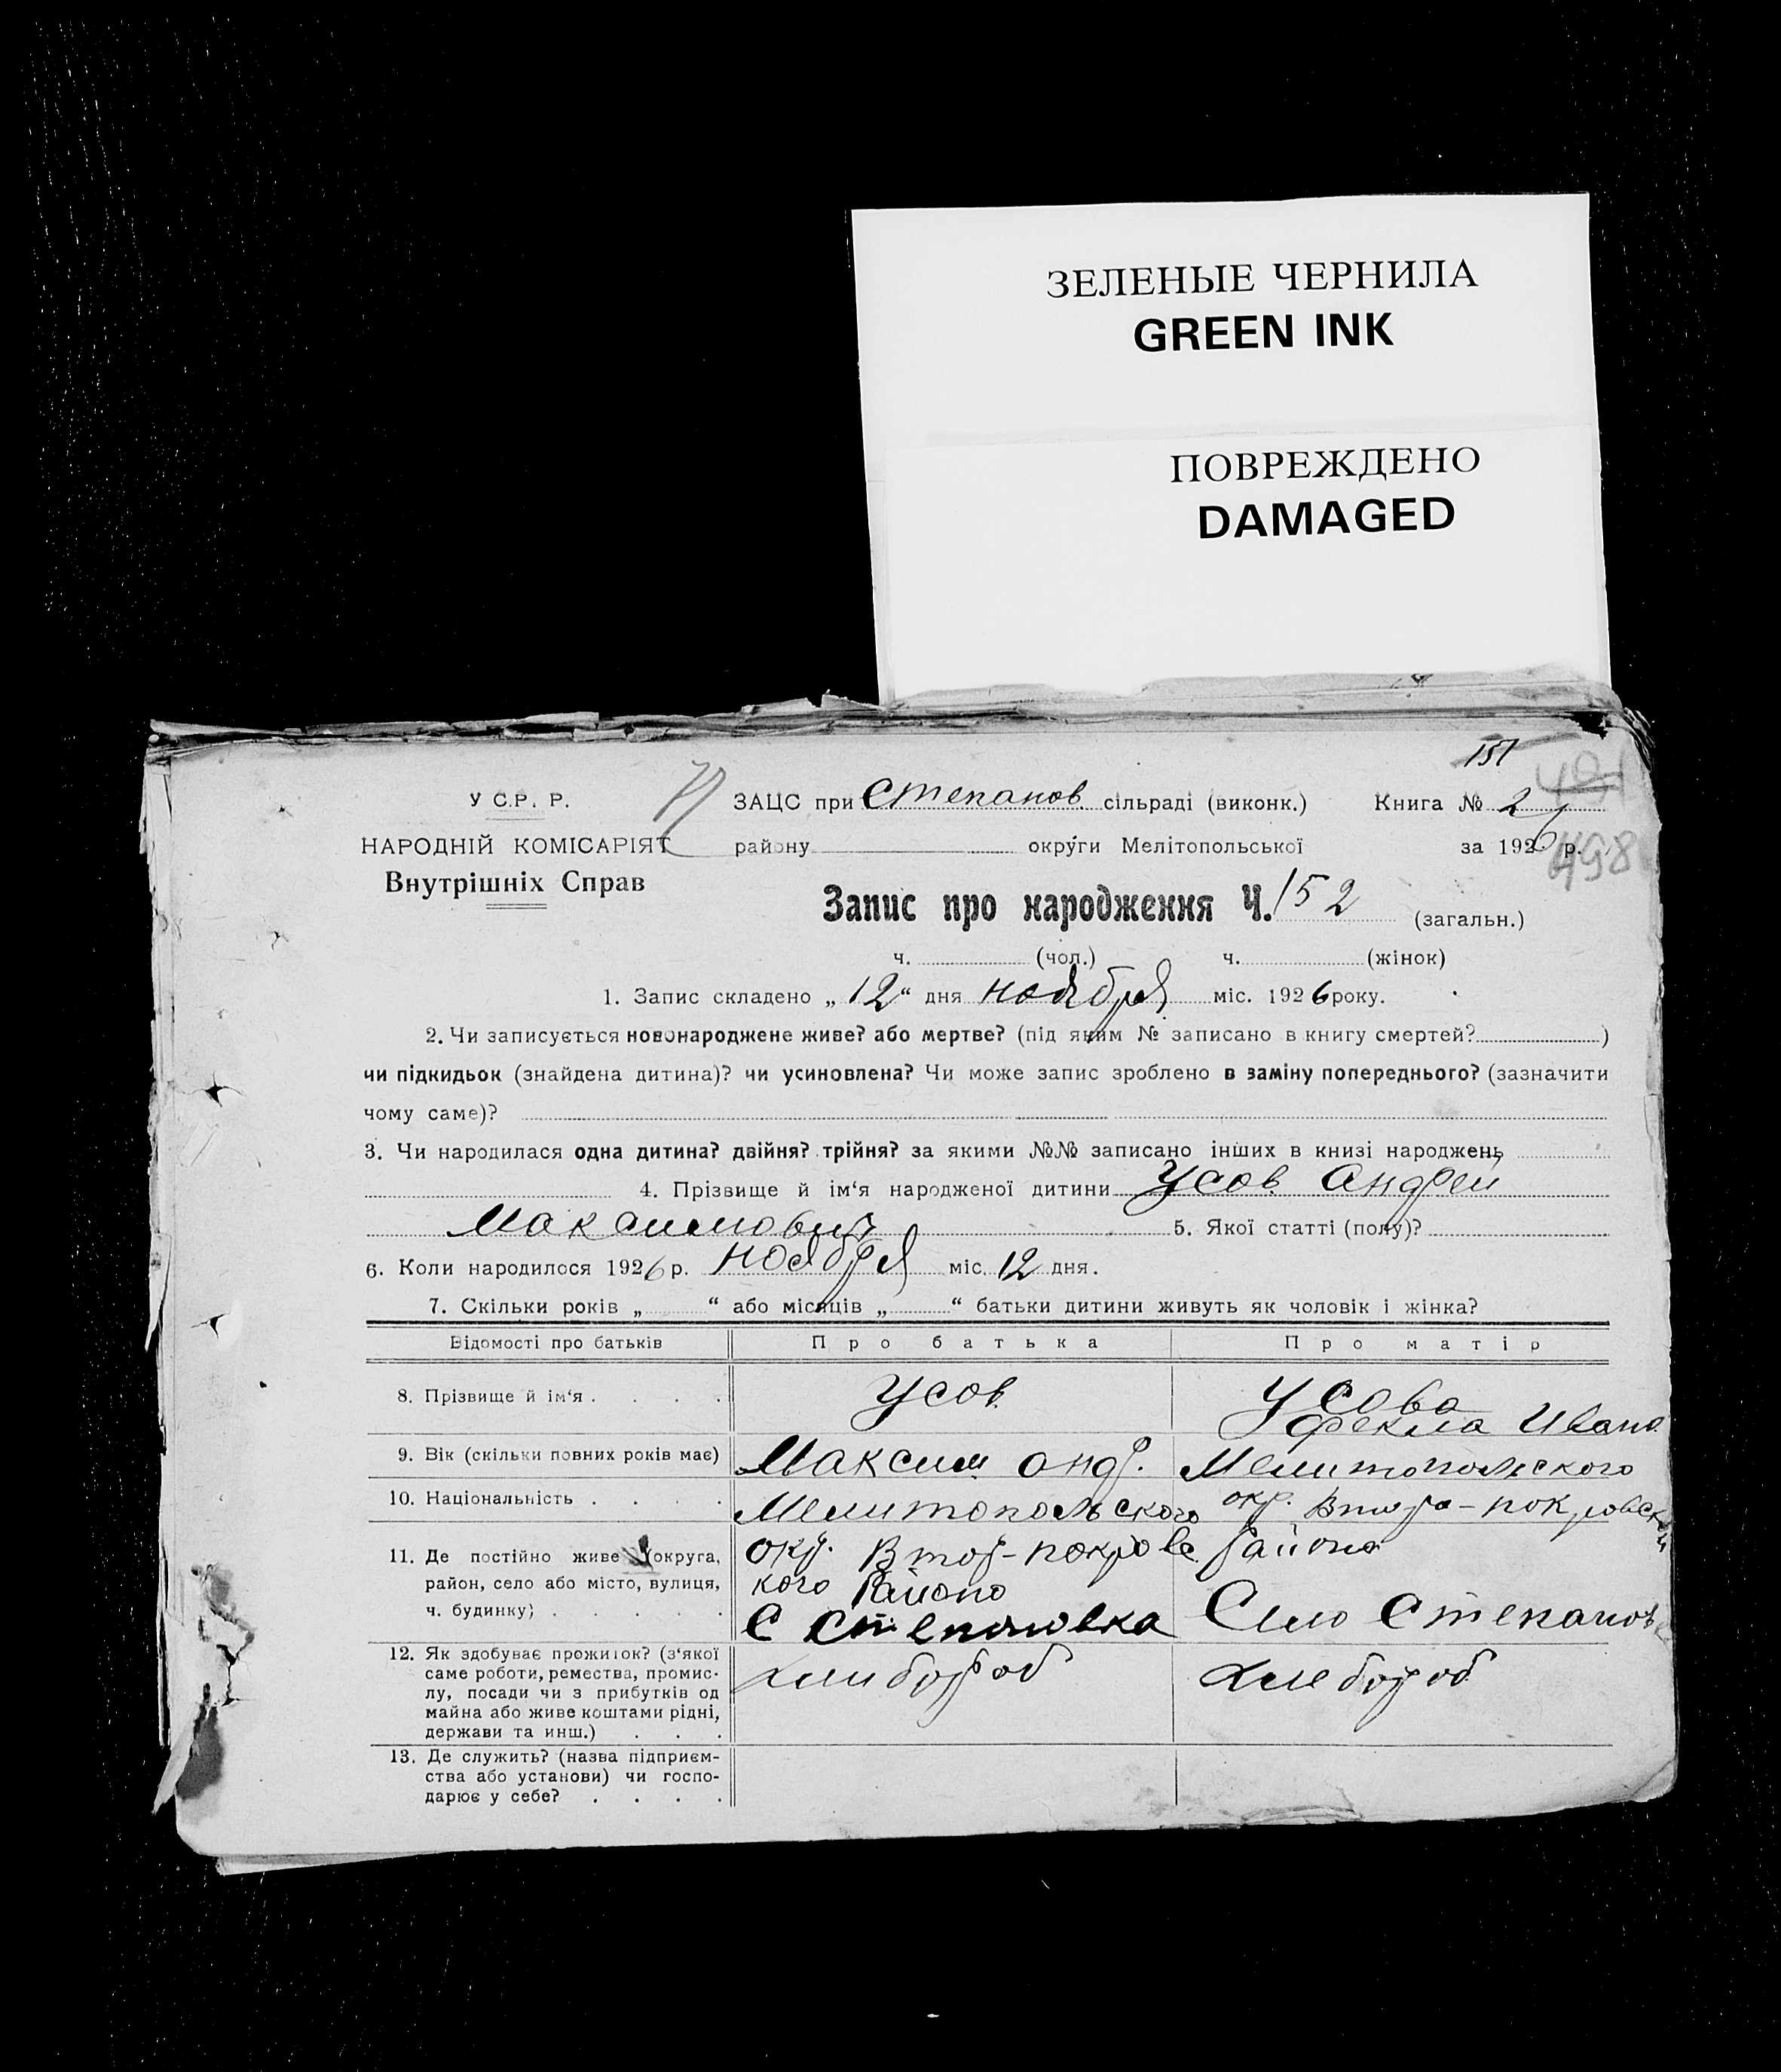 ЗЕЛЕНЫЕ ЧЕРНИЛА
GREEN INK
ПОВРЕЖДЕНО
DAMAGED
151
401
498
У С.Р. Р.
НАРОДНІЙ КОМІСАРІЯТ
Внутрішніх Справ
ЗАЦС при Степанов сільраді (виконк.) Книга № 2
району округи Мелітопольської за 1926 р.
Запис про народження Ч. 152 (загальн.)
ч. (чол.) ч. (жінок)
1. Запис складено „ 12 “ дня ноября міс. 1926 року.
2. Чи записується новонароджене живе? або мертве? (під яким № записано в книгу смертей? )
чи підкидьок (знайдена дитина)? чи усиновлена? Чи може запис зроблено в заміну попереднього? (зазначити
чому саме)?
3. Чи народилася одна дитина? двійня? трійня? за якими №№ записано інших в книзі народжень
4. Прізвище й ім‘я народженої дитини Усов Андрей
Максимович 5. Якої статті (полу)?
6. Коли народилося 1926 р. ноября міс. 12 дня.
7. Скільки років „ “ або місяців „ “ батьки дитини живуть як чоловік і жінка?
Відомості про батьків Про батька Про матір
8. Прізвище й ім‘я . . . . Усов Усова
Фекла Ивано
9. Вік (скільки повних років має) Максим Андр. Мелитопольского
10. Національність . . . . Мелитопольского окр. Втора-покровск
11. Де постійно живе (округа, окр. Втор-покровс района
район, село або місто, вулиця, кого Района
ч. будинку) . . . . . С Степановка Село Степановк
12. Як здобуває прожиток? (з‘якої хлибороб хлебороб
саме роботи, ремества, промис-
лу, посади чи з прибутків од
майна або живе коштами рідні,
держави та инш.) . . .
13. Де служить? (назва підприєм-
ства або установи) чи госпо-
дарює у себе? . . . .